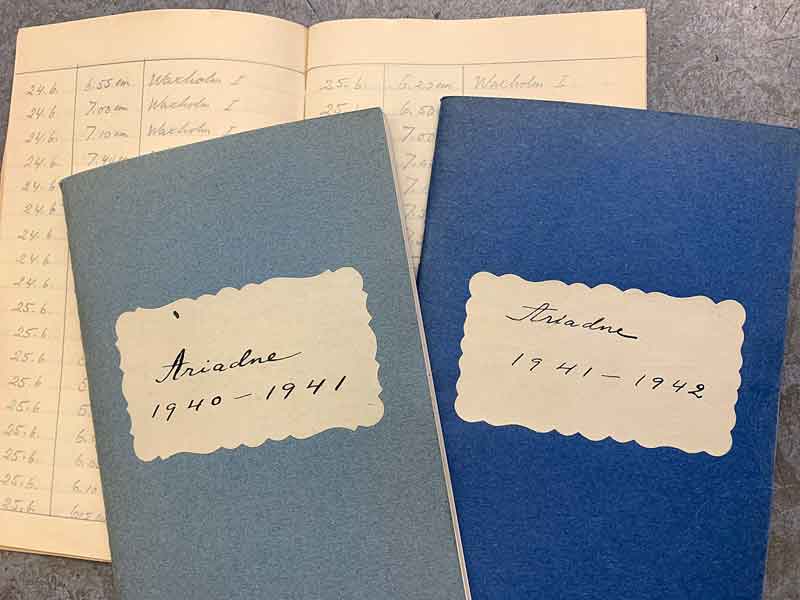 24.6. 6.55 em Waxholm I
24.6. 7.00 em Waxholm I
24.6. 7.10 em Waxholm I
24.6.
24.6.
24.6.
24.6.
24.6.
24.6.
25.6.
25.6.
25.6.
25.6.
25.6.
25.6.
25.6.
25.6. 6.10
25.6.
25.6. 6.25 em Waxholm I
25.6. 6.50
7.00
Ariadne
1940 – 1941
Ariadne
1941 – 1942